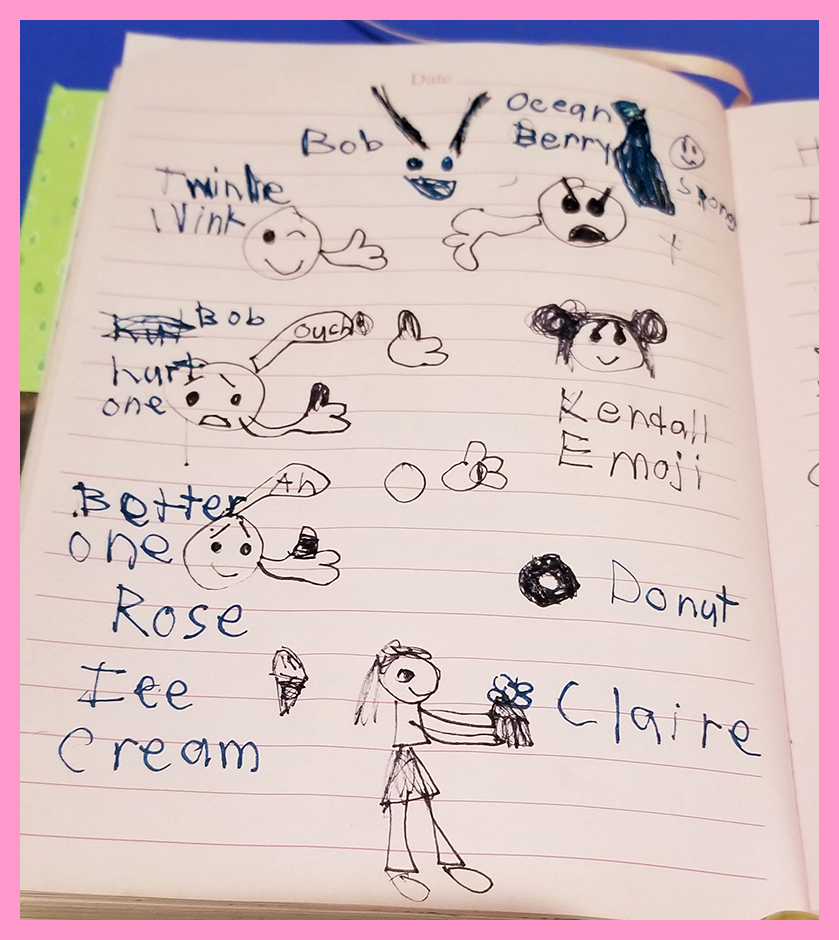 Date
Ocean
Bob
Berry
Twinkle
Wink
Bob
Ouch
hurt
one
Kendall
Emoji
Ah
Better
one
Donut
Rose
Ice
Claire
Cream